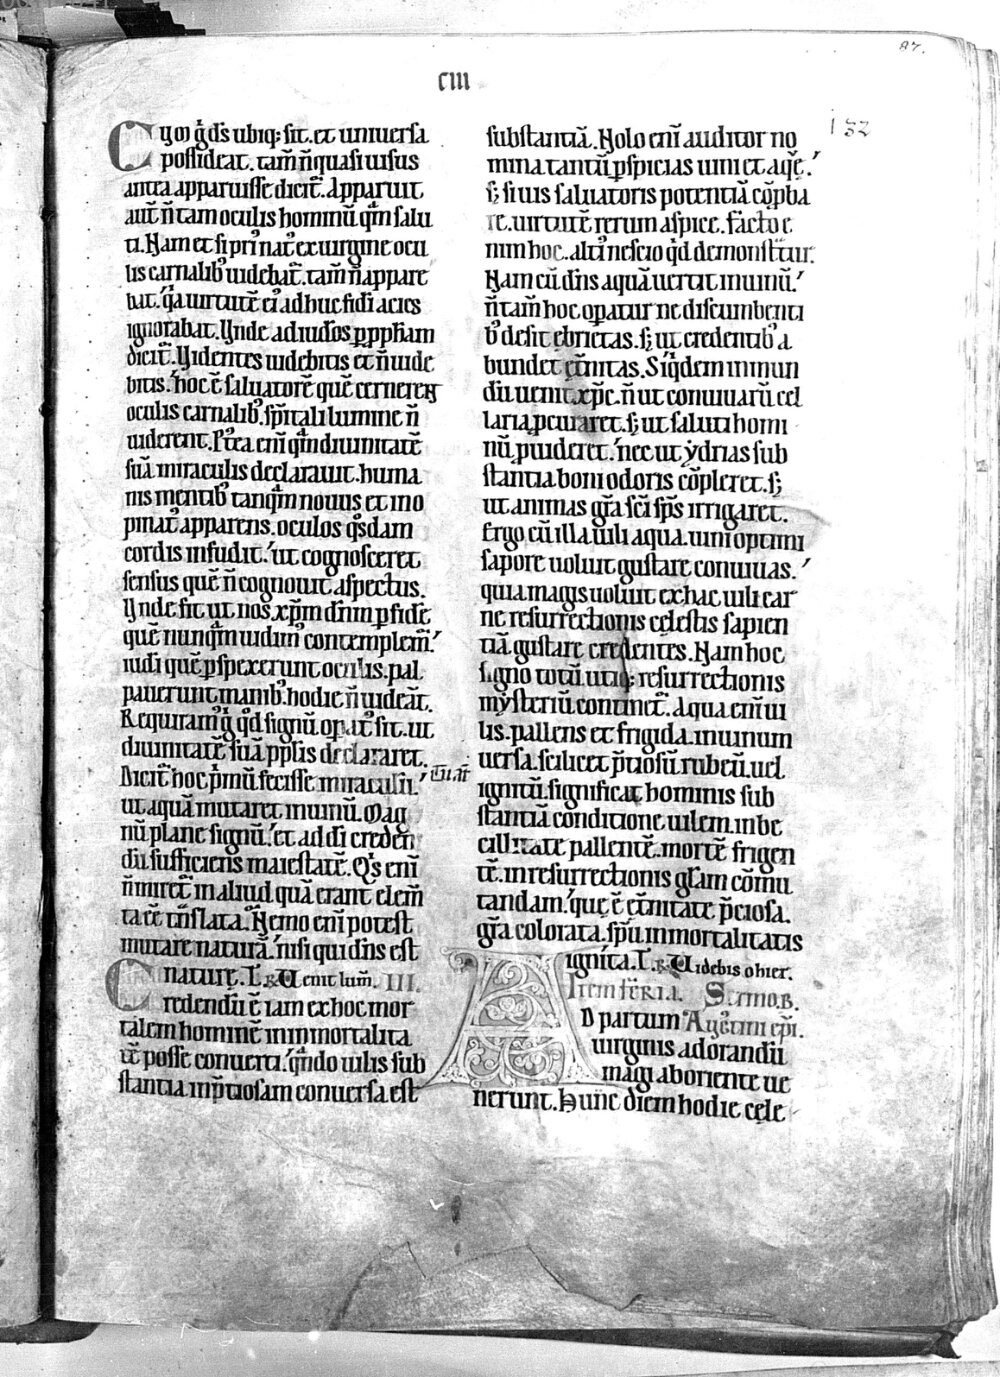 87.
CIII
132
Cum g̊ ds̄ ubiq; sit. et uniuersa
possideat. tam̄ n̄ quasi uisus
antea apparuisse dicit̄. Apparuit
aut̄ n̄ tam oculis hominū qm̄ salu
ti. Nam et si pri nat᷒ ex uirgine ocu
lis carnalib᷒ uidebat̄. tam̄ n̄ appare
bat. q̇a uirtutē ei᷒ adhuc fidi acies
ignorabat. Vnde ad iudos ꝑ pphām
dicit̄. Videntes uidebitis et n̄ uide
bitis. hoc ē saluatorē quē cernerent
oculis carnalib᷒. spītali lumine n̄
uiderent. Pt̄ea eni qm̄ diuinitatē
suā miraculis declarauit. huma
nis mentib᷒ tanqm̄ nouus et ino
pinat᷒ apparens. oculos qͦsdam
cordis infudit. ut cognosceret
sensus quē n̄ cognouit aspectus.
Vnde fit ut nos xp̄m dn̄m ꝑ fidē
quē nunqm̄ uidim᷒ contemplem᷒.
iudi quē ꝑspexerunt oculis. pal
pauerunt manib᷒. hodie n̄ uideāt.
Requiram᷒ g̊ qd̄ signū opat᷒ sit. ut
diuinitatē suā pplis declararet.
Dicit̄ hoc p̄mū fecisse miraculū.
ut aquā mutaret in uinū. Mag
nū plane signū. et ad dī creden
dū sufficiens maiestatē. Qͥs eni
n̄ miret̄ in aliud quā erant elem̄
ta eē tn̄slata. Nemo eni potest
mutare naturā. nisi qui dn̄s est
naturę. T. R. Venit lum̄. III.
Credendū ē iam ex hoc mor
talem hominē in immortalita
tē posse conuerti. qn̄do uilis sub
stantia in p̄tiosam conuersa est
substantiā. Nolo eni auditor no
mina tantū ꝑspicias uini et aqē.
sꝫ si uis saluatoris potentiā cōpba
re. uirtutē rerum aspice. facto e
nim hoc. altiꝰ nescio qd̄ demonstrat̄.
Nam cū dn̄s aquā uertit in uinū.
n̄ tam hoc opatur ne discumbenti
b᷒ desit ebrietas. sꝫ ut credentib᷒ a
bundet ęt̄nitas. Siqͥdem in mun
dū uenit xp̄c. n̄ ut conuiuarū cel
laria ꝓcuraret. sꝫ ut saluti homi
nū ꝓuideret. nec ut ydrias sub
stantia boni odoris cōpleret. sꝫ
ut animas gr̄a sc̄i sp̄s irrigaret.
Ergo cū illa uili aqua. uini optimi
sapore uoluit gustare conuiuas.
quia magis uoluit ex hac uili car
ne resurrectionis cęlestis sapien
tiā gustare credentes. Nam hoc
signo totū utiq; resurrectionis
mysteriū continet̄. Aqua eni ui
lis. pallens et frigida. in uinum
uersa. scilicet p̄tiosū rubeū. uel
ignitū. significat hominis sub
stantiā conditione uilem. inbe
cillitate pallentē. mortē frigen
tē. in resurrectionis glām cōmu
tandam. que ē ęt̄nitate p̄ciosa.
gr̄a colorata. spū immortalitatis
ignita. T. R. Videbis ohier.
Item fēria. Sermo. B.
Augustini epī.
AD partum
uirginis adorandū
magi ab oriente ue
nerunt. Hunc diem hodie cele